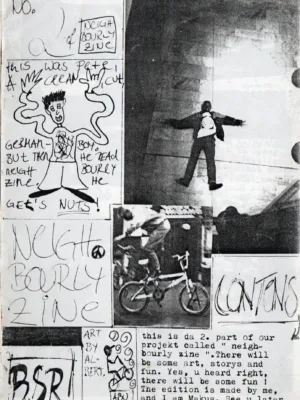 NO.
2
of
NEIGH
BOURLY
ZINE
THIS WAS PETE!
A
CREAM
CUT
GERMAN-
BOY.
BUT THEN
HE READ
NEIGH
BOURLY
ZINE.
HE
GET'S NUTS!
NEIGH
BOURLY
ZINE
CONTENS
BSR
ART
BY
AL-
BERT.
this is da 2. part of our
projekt called " neigh-
bourly zine ".There will
be some art, storys and
fun. Yes, u heard right,
there will be some fun !
The edition is made by me,
and I am Makus. See u later